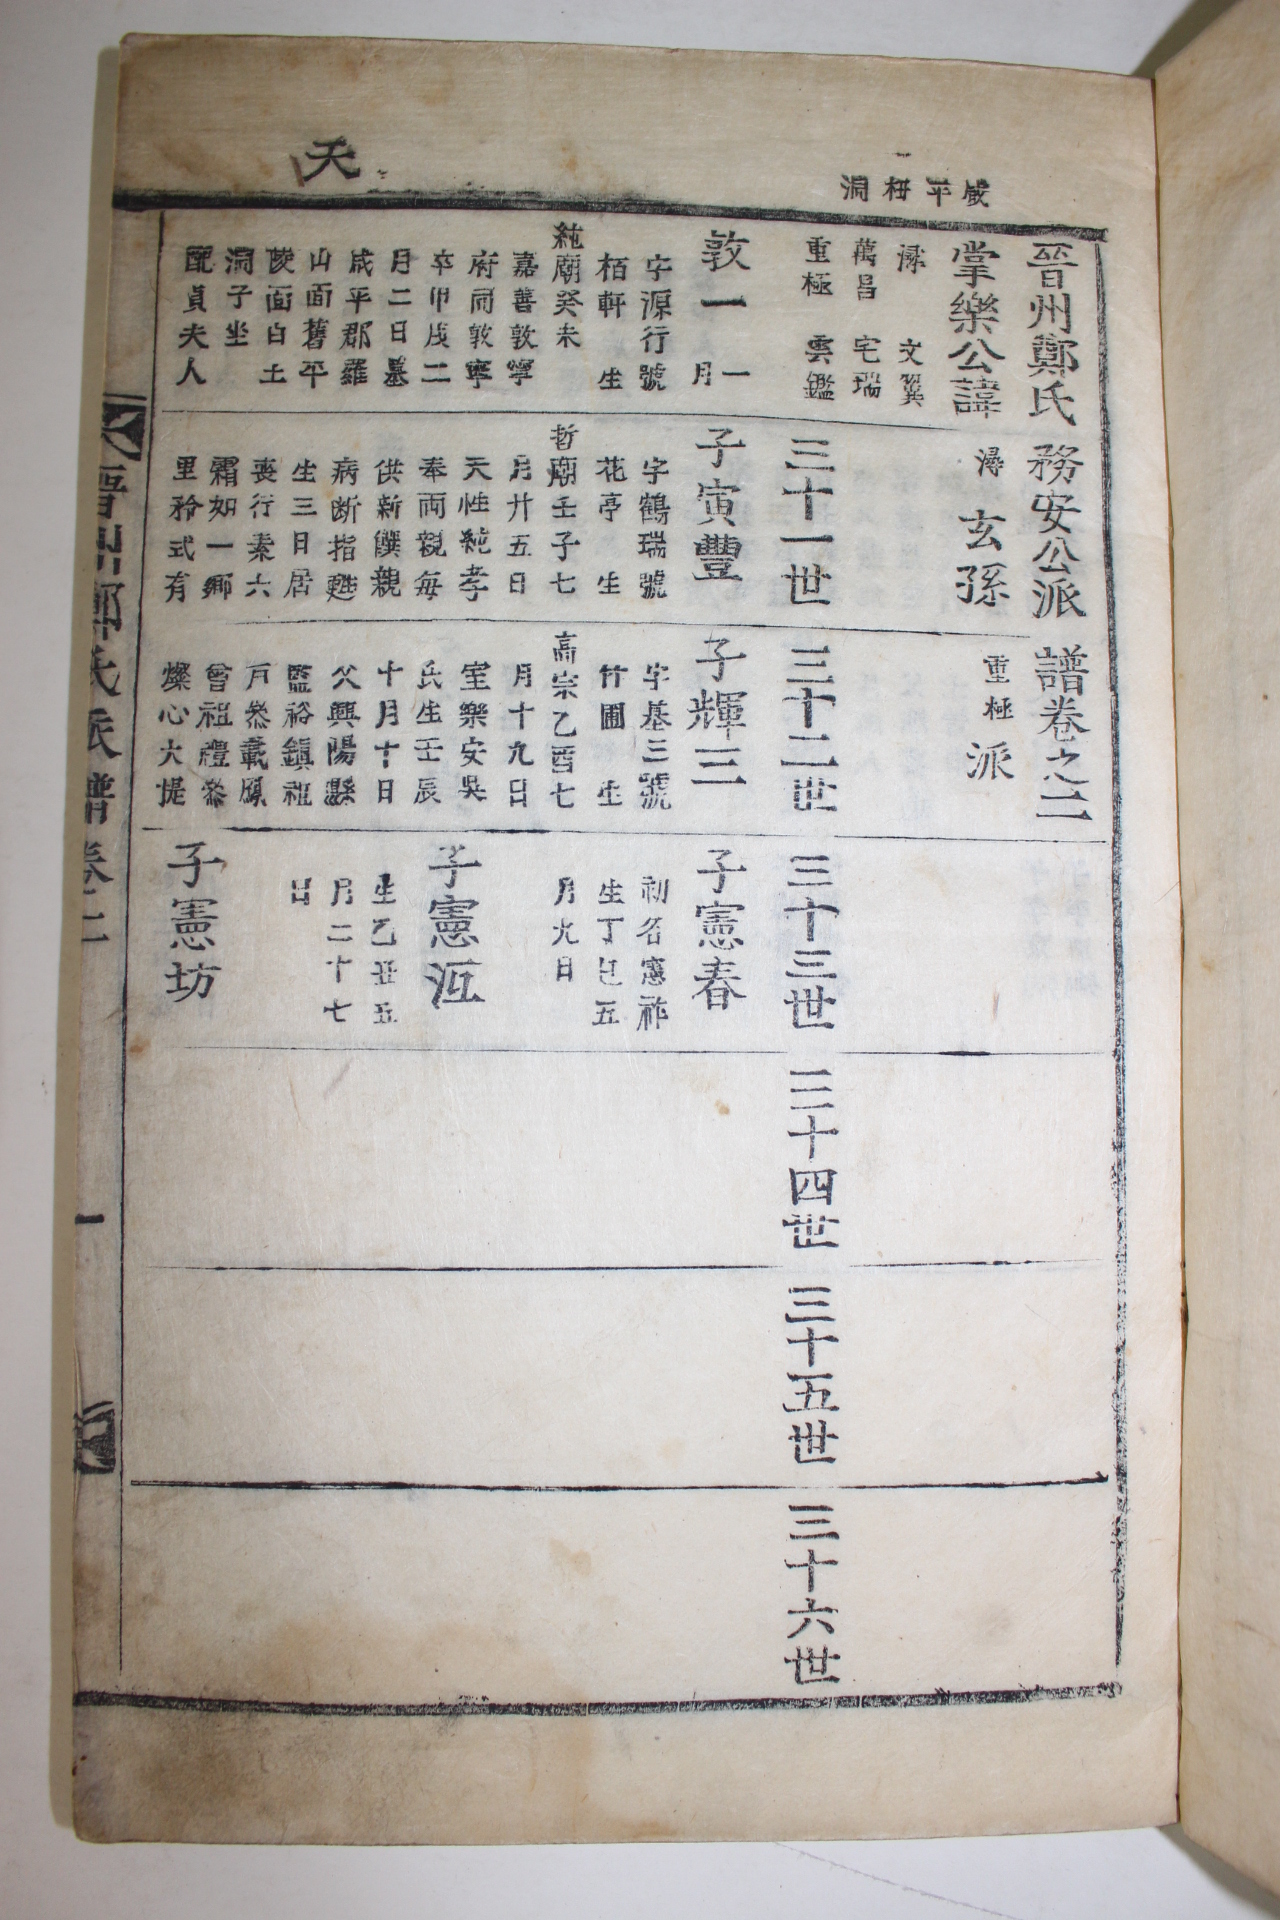 天
咸平梅洞
晉州鄭氏務安公派譜卷之二
掌樂公諱潯玄孫重極派
濠 文翼
萬昌 宅瑞
重極 雲鑑
三十一世
三十二世
三十三世
三十四世
三十五世
三十六世
敦一 一月
字源行號
栢軒 生
純廟癸未
嘉善敦寧
府同敦寧
卒甲戌二
月二日墓
咸平郡羅
山面舊平
陵面白土
洞子坐
配貞夫人
子寅豐
字鶴瑞號
花亭 生
哲廟壬子七
月廿五日
天性純孝
奉兩親每
供新饌親
病斷指甦
生三日居
喪行素六
霜如一鄉
里矜式有
子輝三
字基三號
竹圃 生
高宗乙酉七
月十九日
室樂安吳
氏生壬辰
十月十日
父興陽縣
監裕鎭祖
戶叅載鳳
曾祖禮叅
燦心大提
子憲春
初名憲祚
生丁巳五
月九日
子憲沍
生乙丑五
月二十七
日
子憲坊
晉州鄭氏派譜卷二
一